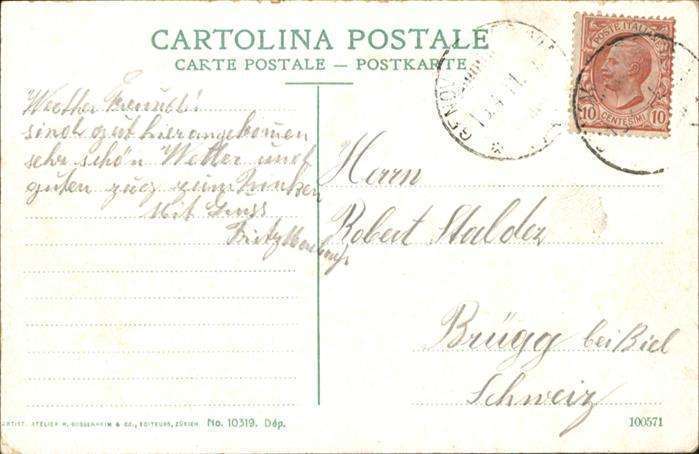 CARTOLINA POSTALE
CARTE POSTALE — POSTKARTE
POSTE ITALIANE
10 CENTESIMI 10
GENOVA
Werther Freund!
sind gut hier angekommen
sehr schön Wetter und
guten zug zum
Mit Gruss
Fritz
Herrn
Robert Stalder
Brügg bei Biel
Schweiz
ARTIST. ATELIER H. GUGGENHEIM & CO., EDITEURS, ZÜRICH No. 10319. Dép.
100571